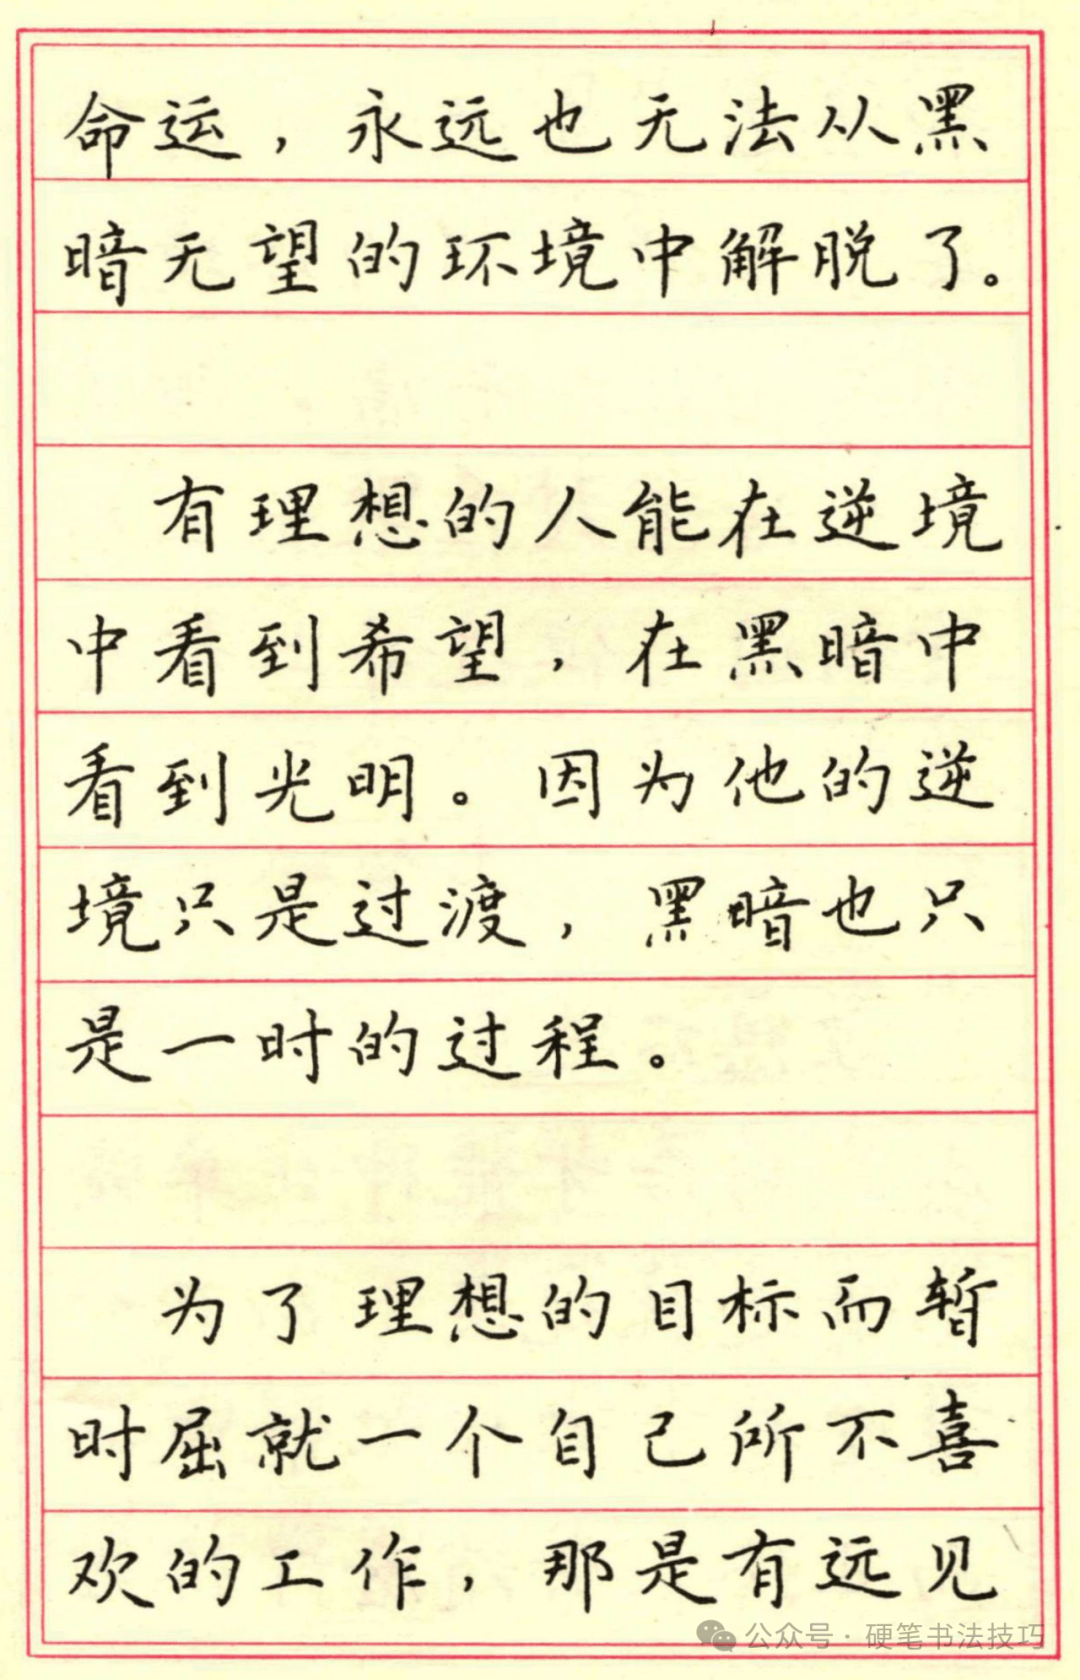 命运，永远也无法从黑
暗无望的环境中解脱了。
有理想的人能在逆境
中看到希望，在黑暗中
看到光明。因为他的逆
境只是过渡，黑暗也只
是一时的过程。
为了理想的目标而暂
时屈就一个自己所不喜
欢的工作，那是有远见
公众号·硬笔书法技巧